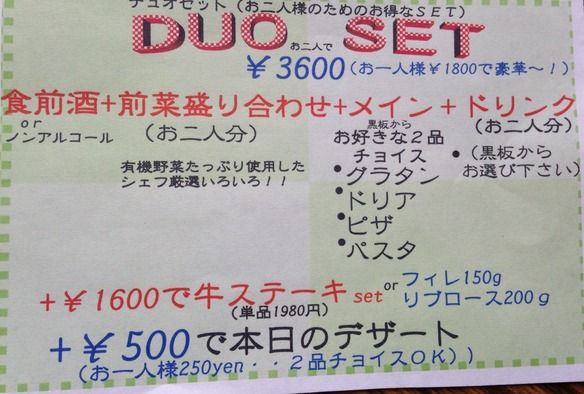 デュオセット(お二人様のためのお得なSET)
DUO お二人で SET
¥3600(お一人様¥1800で豪華~!)
食前酒+前菜盛り合わせ+メイン+ドリンク
or
ノンアルコール
(お二人分)
有機野菜たっぷり使用した
シェフ厳選いろいろ!!
黒板から
お好きな2品
チョイス
•グラタン
•ドリア
•ピザ
•パスタ
(お二人分)
•(黒板から
お選び下さい)
+¥1600で牛ステーキset or フィレ150g
リブロース200g
(単品1980円)
+¥500で本日のデザート
(お一人様250yen・・2品チョイスOK))